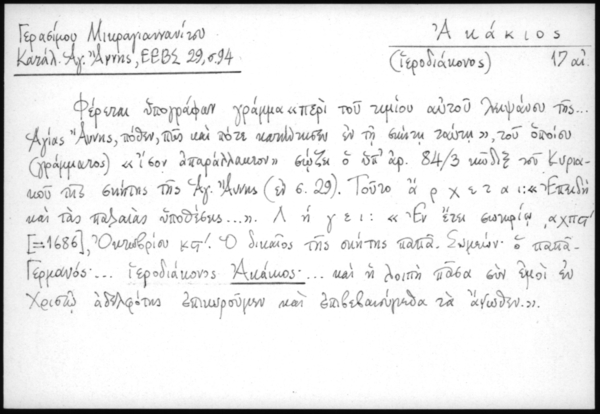 Γερασίμου Μικραγιαννανίτου
Κατάλ. Ἁγ. Ἄννης, ΕΕΒΣ 29, σ. 94
Ἀκάκιος
(ἱεροδιάκονος) 17 αἰ.
Φέρεται ὑπογράφων γράμμα «περὶ τοῦ τιμίου αὐτοῦ λειψάνου τῆς...
Ἁγίας Ἄννης, πόθεν, πῶς καὶ πότε κατήντησεν ἐν τῇ σκήτῃ ταύτῃ», τοῦ ὁποίου
(γράμματος) «ἴσον ἀπαράλλακτον» σῴζει ὁ ὑπ' ἀρ. 84/3 κῶδιξ τοῦ Κυρια-
κοῦ τῆς σκήτης τῆς Ἁγ. Ἄννης (ἐν σ. 29). Τοῦτο ἄρχεται: «Ἐπειδὴ
καὶ τὰς παλαιὰς ὑποθέσεις...». Λήγει: «Ἐν ἔτει σωτηρίῳ ͵αχπστ΄
[=1686], Ὀκτωβρίου κστ΄. Ὁ δικαῖος τῆς σκήτης παπᾶ-Συμεών· ὁ παπᾶ-
Γερμανός·... ἱεροδιάκονος Ἀκάκιος·... καὶ ἡ λοιπὴ πᾶσα σὺν ἐμοὶ ἐν
Χριστῷ ἀδελφότης ἐπικυροῦμεν καὶ ἐπιβεβαιούμεθα τὰ ἄνωθεν.».